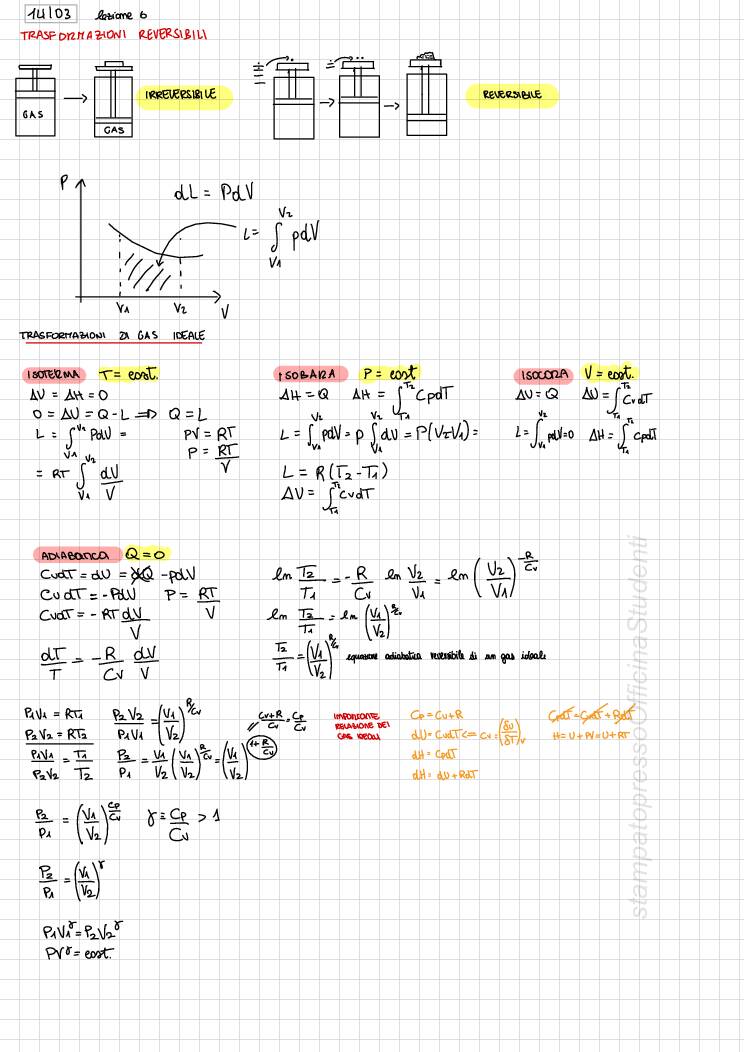 14/03 lezione 6
TRASFORMAZIONI REVERSIBILI
GAS
GAS
IRREVERSIBILE
REVERSIBILE
P
dL = PdV
L = ∫_V1^V2 pdV
V1 V2 V
TRASFORMAZIONI DI GAS IDEALE
ISOTERMA T = cost.
ΔU = ΔH = 0
0 = ΔU = Q - L ⟹ Q = L
L = ∫_V1^V2 PdV = PV = RT
P = RT/V
= RT ∫_V1^V2 dV/V
ISOBARA P = cost
ΔH = Q ΔH = ∫_T1^T2 CpdT
L = ∫_V1^V2 pdV = p ∫_V1^V2 dV = P(V2-V1) =
L = R(T2-T1)
ΔU = ∫_T1^T2 CvdT
ISOCORA V = cost.
ΔU = Q ΔU = ∫_T1^T2 CvdT
L = ∫_V1^V2 pdV = 0 ΔH = ∫_T1^T2 CpdT
ADIABATICA Q = 0
CvdT = dU = dQ - pdV
CvdT = -PdV P = RT/V
CvdT = -RT dV/V
dT/T = -R/Cv dV/V
ln T2/T1 = -R/Cv ln V2/V1 = ln (V2/V1)^-R/Cv
ln T2/T1 = ln (V1/V2)^R/Cv
T2/T1 = (V1/V2)^R/Cv equazione adiabatica reversibile di un gas ideale
P1V1 = RT1
P2V2 = RT2
P1V1/P2V2 = T1/T2
P2V2/P1V1 = (V1/V2)^R/Cv
P2/P1 = V1/V2 (V1/V2)^R/Cv = (V1/V2)^1+R/Cv
Cv+R/Cv = Cp/Cv
IMPORTANTE
RELAZIONE DEI
GAS IDEALI
Cp = Cv+R
dU = CvdT <= Cv = (δU/δT)v
dH = CpdT
dH = dU + RdT
CpdT = CvdT + RdT
H = U + PV = U + RT
P2/P1 = (V1/V2)^Cp/Cv γ ≡ Cp/Cv > 1
P2/P1 = (V1/V2)^γ
P1V1^γ = P2V2^γ
PV^γ = cost.
stampatopressoOfficinaStudenti